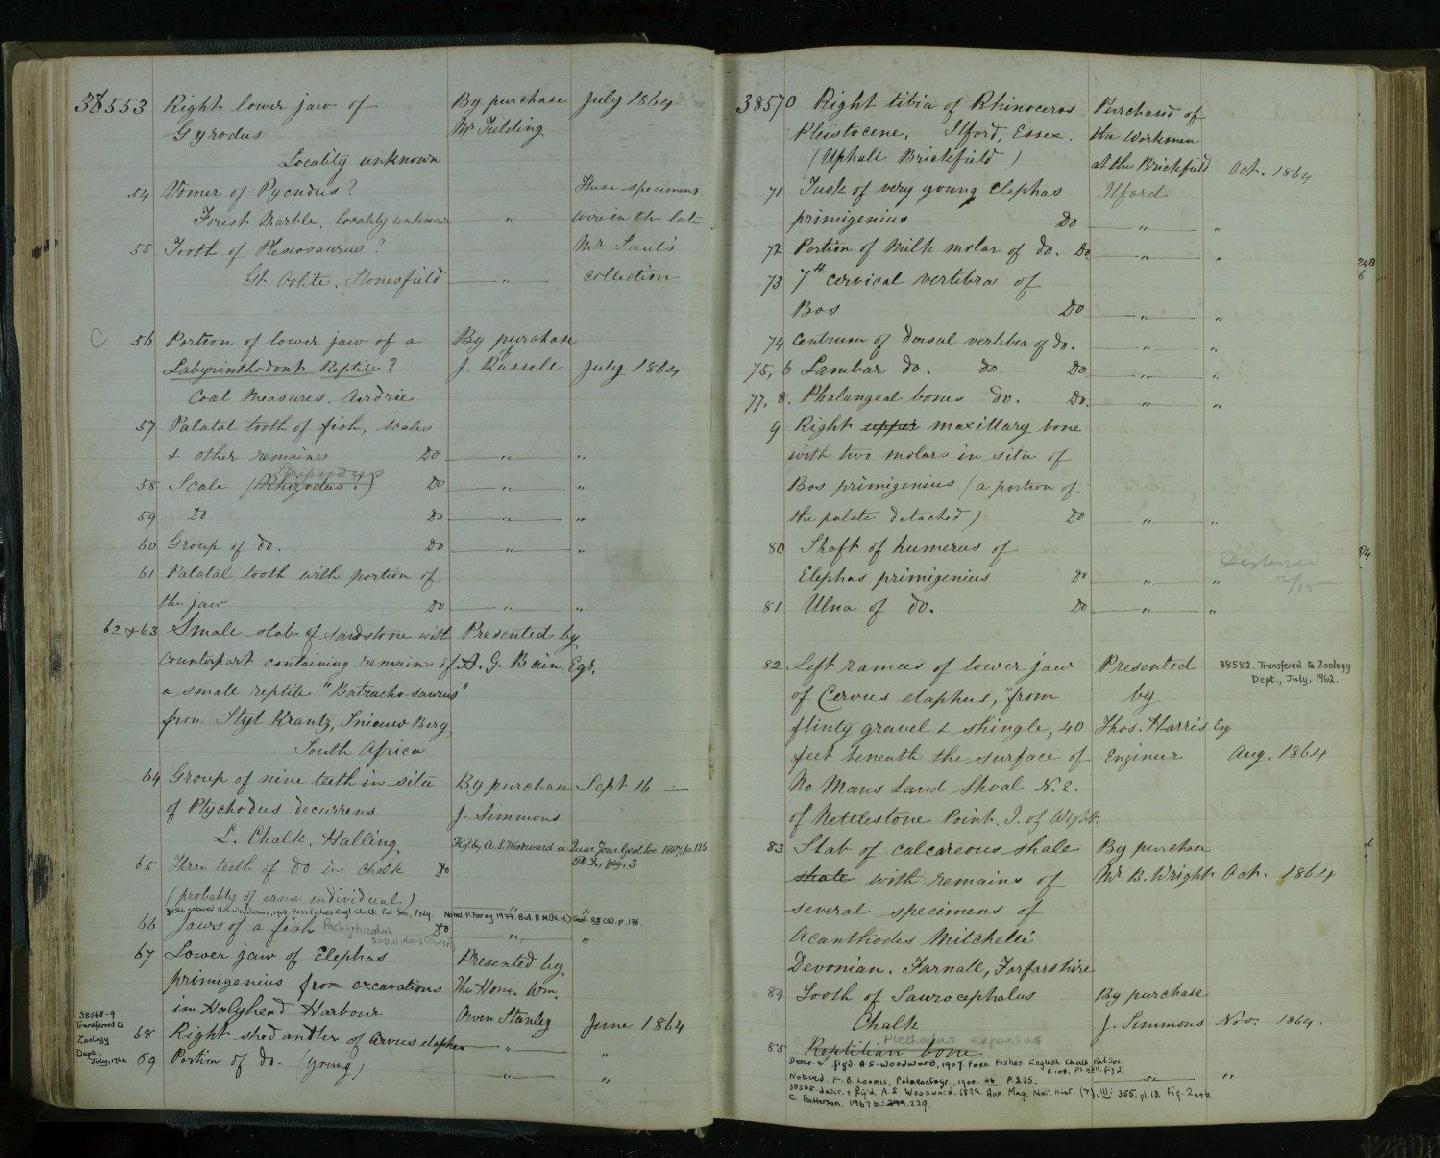 38553 Right lower jaw of By purchase July 1864
Gyrodus Mr Fielding
Locality unknown
54 Vomer of Pycnodus? These specimens
Forest Marble, locality unknown " were in the late
55 Tooth of Plesiosaurus? Mr Saul's
Gt Oolite, Stonesfield " collection
C 56 Portion of lower jaw of a By purchase
Labyrinthodont Reptile? J. Russell July 1864
Coal Measures, Airdrie
57 Palatal tooth of fish, scales
& other remains Do " "
58 Scale (Rhizodus?) Do " "
59 Do Do " "
60 Group of do. Do " "
61 Palatal tooth with portion of
the jaw Do " "
62 & 63 Small slab of sandstone with Presented by
counterpart containing remains of A. G. Bain, Esqr.
a small reptile "Batracho-saurus"
from Styl Krantz, Sniewo Berg,
South Africa
64 Group of nine teeth in situ By purchase Sept 16 —
of Ptychodus decurrens J. Simmons
L. Chalk, Halling
Fig by A. S. Woodward in Quar. Jour. Geol. Soc. 1887, p. 125
65 Three teeth of Do in Chalk Do
(probably of same individual) " "
Noted P. Forey 1977. Bull. B.M.(N.H.) Geol. 28 (2). p. 176.
66 Jaws of a fish Pachyrhizodus Do " "
67 Lower jaw of Elephas Presented by
primigenius from excavations The Hone. Wm.
in Holyhead Harbour Owen Stanley June 1864
38568-9
Transfered to
Zoology
Dept.,
68 Right shed antler of Cervus elaphus " "
69 Portion of do. (young) " "
38570 Right tibia of Rhinoceros Purchased of
Pleistocene, Ilford, Essex. the Workmen
(Uphall Brickfield) at the Brickfield Oct. 1864
71 Tusk of very young Elephas Ilford
primigenius Do " "
72 Portion of Milk molar of do. Do " "
73 7th cervical vertebra of
Bos Do " "
74 Centrum of dorsal vertebra of do. " "
75, 6 Lumbar do. do Do " "
77, 8. Phalangeal bones do. Do. " "
9 Right upper maxillary bone
with two molars in situ of
Bos primigenius (a portion of
the palate detached) Do " "
80 Shaft of humerus of
Elephas primigenius Do " "
81 Ulna of do. Do " "
82 Left ramus of lower jaw Presented 38582. Transfered to Zoology
Dept., July, 1962.
of Cervus elaphus, "from by
flinty gravel & shingle, 40 Thos. Harris Esq
feet beneath the surface of Engineer Aug. 1864
No Mans Land Shoal N.E.
of Nettlestone Point. I. of Wight.
83 Slab of calcareous shale By purchase
shale with remains of Mr B. Wright Oct. 1864
several specimens of
Acanthodes Mitchelli
Devonian. Farnell, Forfarshire
84 Tooth of Saurocephalus By purchase
Chalk J. Simmons Nov. 1864.
85 Reptilian bone Plethodus expansus " "
Descr. & fig'd A. S. Woodward, 1907. Foss. Fishes English Chalk, Pal. Soc.
Noticed. F. B. Loomis, Palaeontogr., 1900. 46 p. 235.
38585 descr. & fig'd. A. S. Woodward. 1899. Ann. Mag. Nat. Hist (7), III: 355. pl 13. Fig.
C. Patterson. 1967 b: 229.